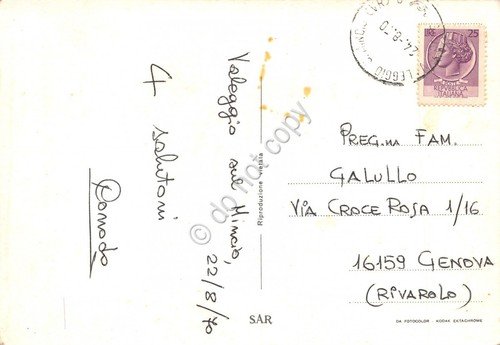 Valeggio sul Mincio, 22/8/70
4 salutoni
Riproduzione vietata
SAR
LIRE 25
REPUBBLICA
ITALIANA
24-8-70
PREG.ma FAM.
GALULLO
VIA CROCE ROSA 1/16
16159 GENOVA
(RIVAROLO)
DA FOTOCOLOR - KODAK EKTACHROME
do not copy